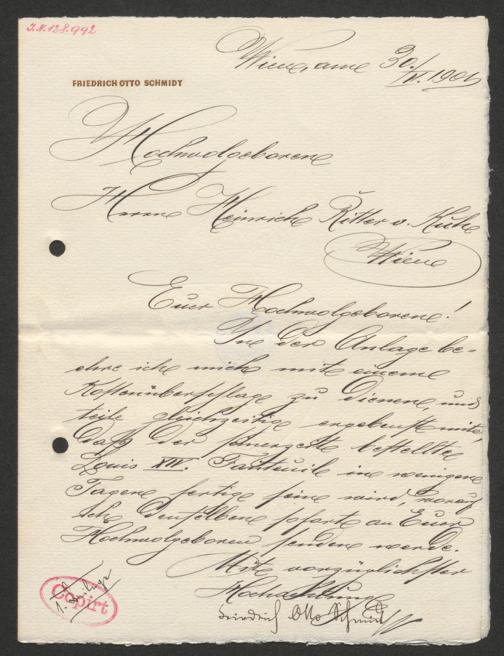 I.N. 128.992
Wien, am 30./IV. 1901
FRIEDRICH OTTO SCHMIDT
Hochwolgeboren
Herrn Heinrich Ritter v.
Wien
Euer Hochwolgeboren!
In der Anlage be-
ehre ich mich mit einem
Kostenüberschlage zu dienen, und
teile gleichzeitig ergebenst mit,
dass der bestellte
Louis XIV. Fauteuil in wenigen
Tagen fertig sein wird, worauf
ich denselben sofort an Euer
Hochwolgeboren senden werde.
Mit vorzüglichster
Hochachtung
Friedrich Otto Schmidt
1 Beilage
Copirt